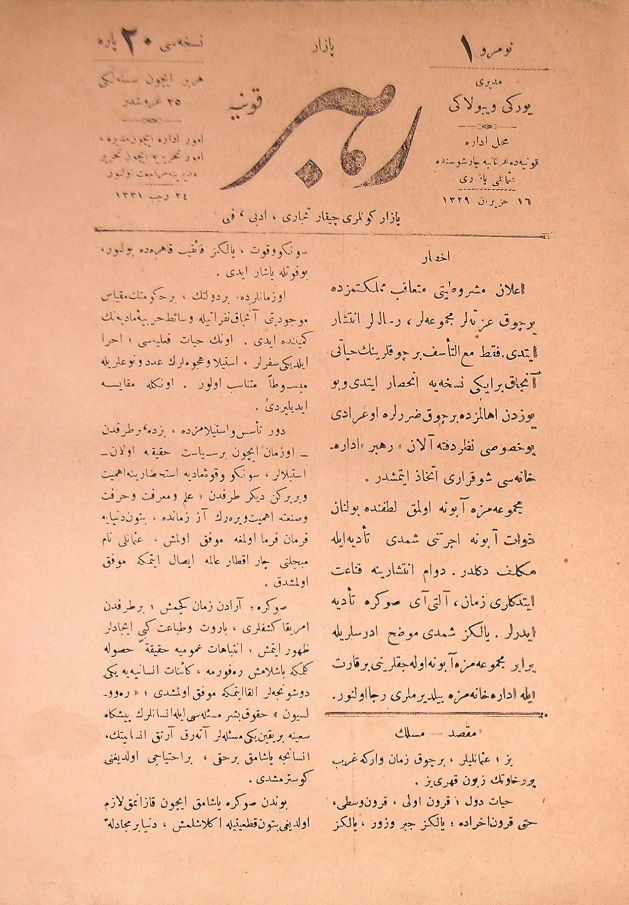 نومرو ١
پازار
نسخه‌سی ٢٠ پاره
مدیری
یورکی
محل اداره
قونیه‌ده
١٦ حزیران ١٣٢٩
رهبر
قونیه
هربر ایچون سنه‌لکی
٣٥ غروشدر
امور اداره ایچون مدیره ،
امور تحریریه ایچون تحریر
مدیرینه مراجعت اولنور
٢٤ رجب ١٣٣١
پازار کونلری چیقار تجاری ، ادبی ، فنی
اخطار
اعلان مشروطیتی متعاقب مملکتمزده
برچوق غزته‌لر مجموعه‌لر ، رساله‌لر انتشار
ایتدی . فقط مع التأسف برچوقلرینك حیاتی
آنجاق برایکی نسخه‌یه انحصار ایتدی و بو
یوزدن اهالمزده برچوق ضررلره اوغرادی
بوخصوصی نظر دقته آلان « رهبر » اداره‌
خانه‌سی شو قراری اتخاذ ایتمشدر .
مجموعه‌مزه آبونه اولمق لطفنده بولنان
ذوات آبونه اجرتنی شمدی تأدیه ایله
مکلف دکلدر . دوام انتشارینه قناعت
ایتدکلری زمان ، آلتی آی صوکره تأدیه
ایدرلر . یالکز شمدی موضح ادرسلریله
برابر مجموعه‌مزه آبونه اوله‌جقلرینی برقارت
ایله اداره‌خانه‌مزه بیلدیرملری رجا اولنور .
مقصد — مسلك
بز ؛ عثمانلیلر ، برچوق زمان وارکه غریب
زبون قهری‌یز .
حیات دول ؛ قرون اولی ، قرون وسطی ،
حتی قرون اخراده ؛ یالکز جبر وزور ، یالکز
سونکو وقوت ، یالکز فاتقیت قاهره‌ده بولنور ،
بو قوتله یاشار ایدی .
اوزمانلرده بردولتك ، برحکومتك مقیاس
موجودیتی آنجاق نفراتیله وسائط حربیهٔ مادیه‌نك
کمیتنده ایدی . اونك حیات فعلیه‌سی ؛ اجرا
ایلدیکی سفرلر ، استیلا وهجوملرك عدد ونوعلریله
مبسوطاً متناسب اولور . اونکله مقایسه
ایدیلیردی .
دور تأسس واستیلامزده ، بزده ، برطرفدن
ـ اوزمان ایچون برسیاست حقیقیه اولان ـ
استیلالر ، سونکو وقوهٔ مادیه استحضارینه اهمیت
ویریرکن دیکر طرفدن ؛ علم ومعرفت وحرفت
وصنعته اهمیت ویره‌رك آز زمانده ، بتون دنیایه
فرمان فرما اولمغه موفق اولمش ، عثمانلی نام
مبجلنی چار اقطار عالمه ایصال ایتمکه موفق
اولمشدق .
صوکره ؛ آرادن زمان کچمش ؛ برطرفدن
امریقا کشفلری ، باروت وطباعت کبی ایجادلر
ظهور ایتمش ؛ انتباهات عمومیه حقیقةً حصوله
کلمکه باشلامش ره‌فورمه ، کائنات انسانیه‌یه یکی
دوشونجه‌لر القا ایتمکه موفق اولمشدی ؛ « ره‌وو‌ـ
لسیون » حقوق بشر مسئله‌سی ایله انسانلرك پیشکاه
سعینه بریغین یکی مسئله‌لر آته‌رق آرتق انسانیتك ،
انسانجه یاشامق برحقی ، براحتیاجی اولدیغنی
کوسترمشدی .
بوندن صوکره یاشامق ایچون قازانمق لازم
اولدیغی بتون قطعیتیله اکلاشلمش ، دنیا برمجادلهٔ